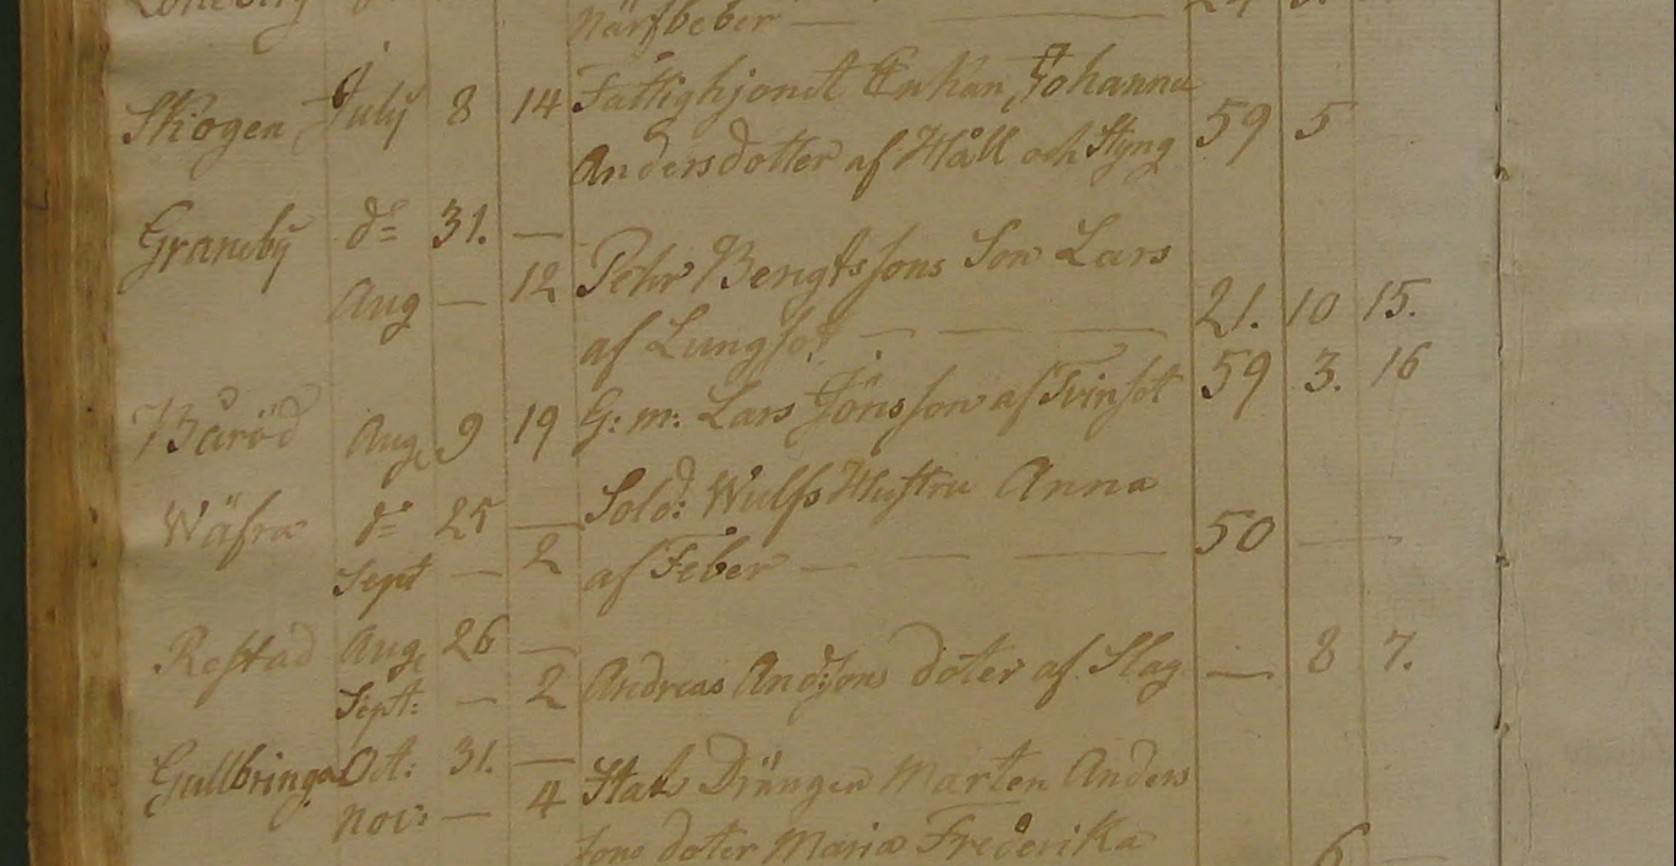 Närfbeber —
Skogen July 8 14 Fattighjonet Enkan Johanna
Andersdotter af Håll och Styng 59 5
Graneby do 31. —
Aug — 12 Pehr Bengtssons Son Lars
af Lungsot — — — 21. 10 15.
Båröd Aug 9 19 G: m: Lars Jönsson af Tvinsot 59 3. 16
Wäfra do 25 — Sold: Wulfs Hustru Anna
Sept — 2 af Feber — — — 50 —
Restad Aug 26 —
Sept: — 2 Andreas And:sons doter af Slag — 8 7.
Gullbringa Oct: 31. —
Nov: — 4 Stats Drängen Marten Anders
sons doter Maria Frederika 6